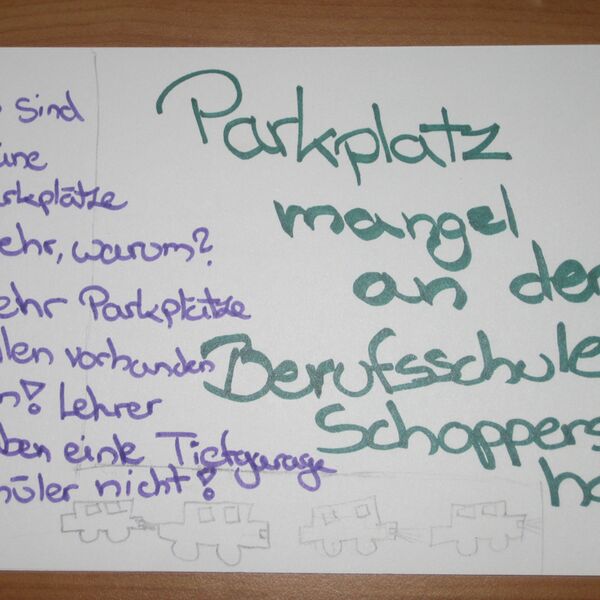 sind
ine
rkplätze
ehr, warum?
ehr Parkplätze
len vorhanden
n! Lehrer
ben eine Tiefgarage
hüler nicht!
Parkplatz
mangel
an der
Berufsschule
Schoppers
ho